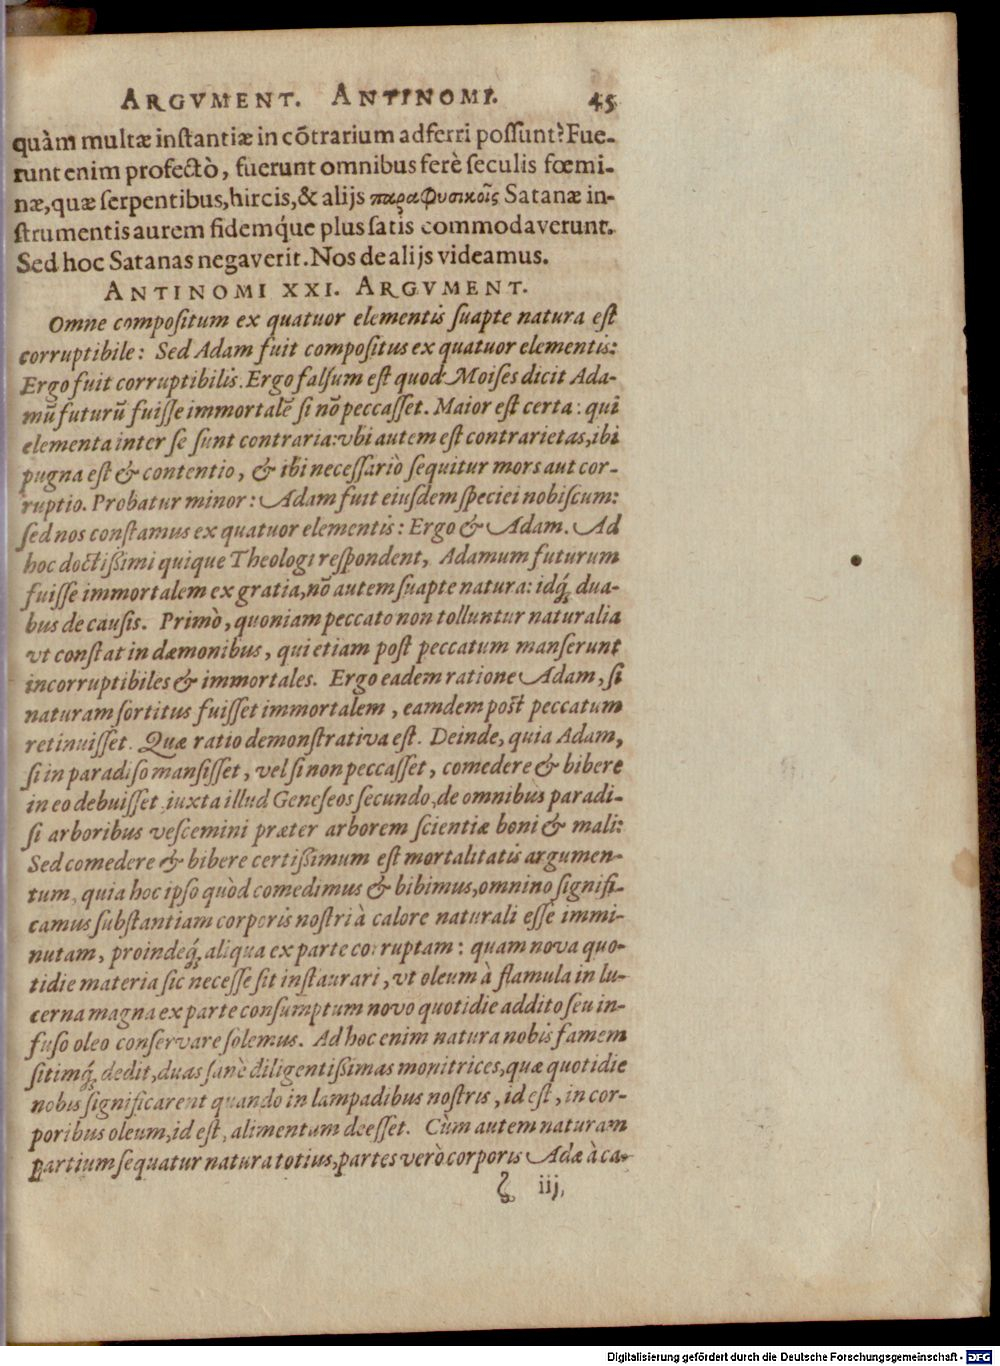 ARGVMENT. ANTINOMI. 45
quàm multæ instantiæ in cõtrarium adferri possunt? Fue-
runt enim profectò, fuerunt omnibus ferè seculis fœmi-
næ, quæ serpentibus, hircis, & alijs παραφυσικοῖς Satanæ in-
strumentis aurem fidemq́ue plus satis commodaverunt.
Sed hoc Satanas negaverit. Nos de alijs videamus.
ANTINOMI XXI. ARGVMENT.
Omne compositum ex quatuor elementis suapte natura est
corruptibile: Sed Adam fuit compositus ex quatuor elementis:
Ergo fuit corruptibilis. Ergo falsum est quod Moises dicit Ada-
mũ futurũ fuisse immortalẽ si nõ peccasset. Maior est certa: qui
elementa inter se sunt contraria: vbi autem est contrarietas, ibi
pugna est & contentio, & ibi necessariò sequitur mors aut cor-
ruptio. Probatur minor: Adam fuit eiusdem speciei nobiscum:
sed nos constamus ex quatuor elementis: Ergo & Adam. Ad
hoc doctißimi quique Theologi respondent, Adamum futurum
fuisse immortalem ex gratia, nõ autem suapte natura: idq́; dua-
bus de causis. Primò, quoniam peccato non tolluntur naturalia
vt constat in dæmonibus, qui etiam post peccatum manserunt
incorruptibiles & immortales. Ergo eadem ratione Adam, si
naturam sortitus fuisset immortalem, eamdem post peccatum
retinuisset. Quæ ratio demonstrativa est. Deinde, quia Adam,
si in paradiso mansisset, vel si non peccasset, comedere & bibere
in eo debuisset iuxta illud Geneseos secundo, de omnibus paradi-
si arboribus vescemini præter arborem scientiæ boni & mali:
Sed comedere & bibere certißimum est mortalitatis argumen-
tum, quia hoc ipso quòd comedimus & bibimus, omnino signifi-
camus substantiam corporis nostri à calore naturali esse immi-
nutam, proindeq́; aliqua ex parte corruptam: quam nova quo-
tidie materia sic necesse sit instaurari, vt oleum à flamula in lu-
cerna magna ex parte consumptum novo quotidie addito seu in-
fuso oleo conservare solemus. Ad hoc enim natura nobis famem
sitimq́; dedit, duas sanè diligentißimas monitrices, quæ quotidie
nobis significarent quando in lampadibus nostris, id est, in cor-
poribus oleum, id est, alimentum deesset. Cùm autem naturam
partium sequatur natura totius, partes verò corporis Adæ à ca-
iij,
Digitalisierung gefördert durch die Deutsche Forschungsgemeinschaft - DFG